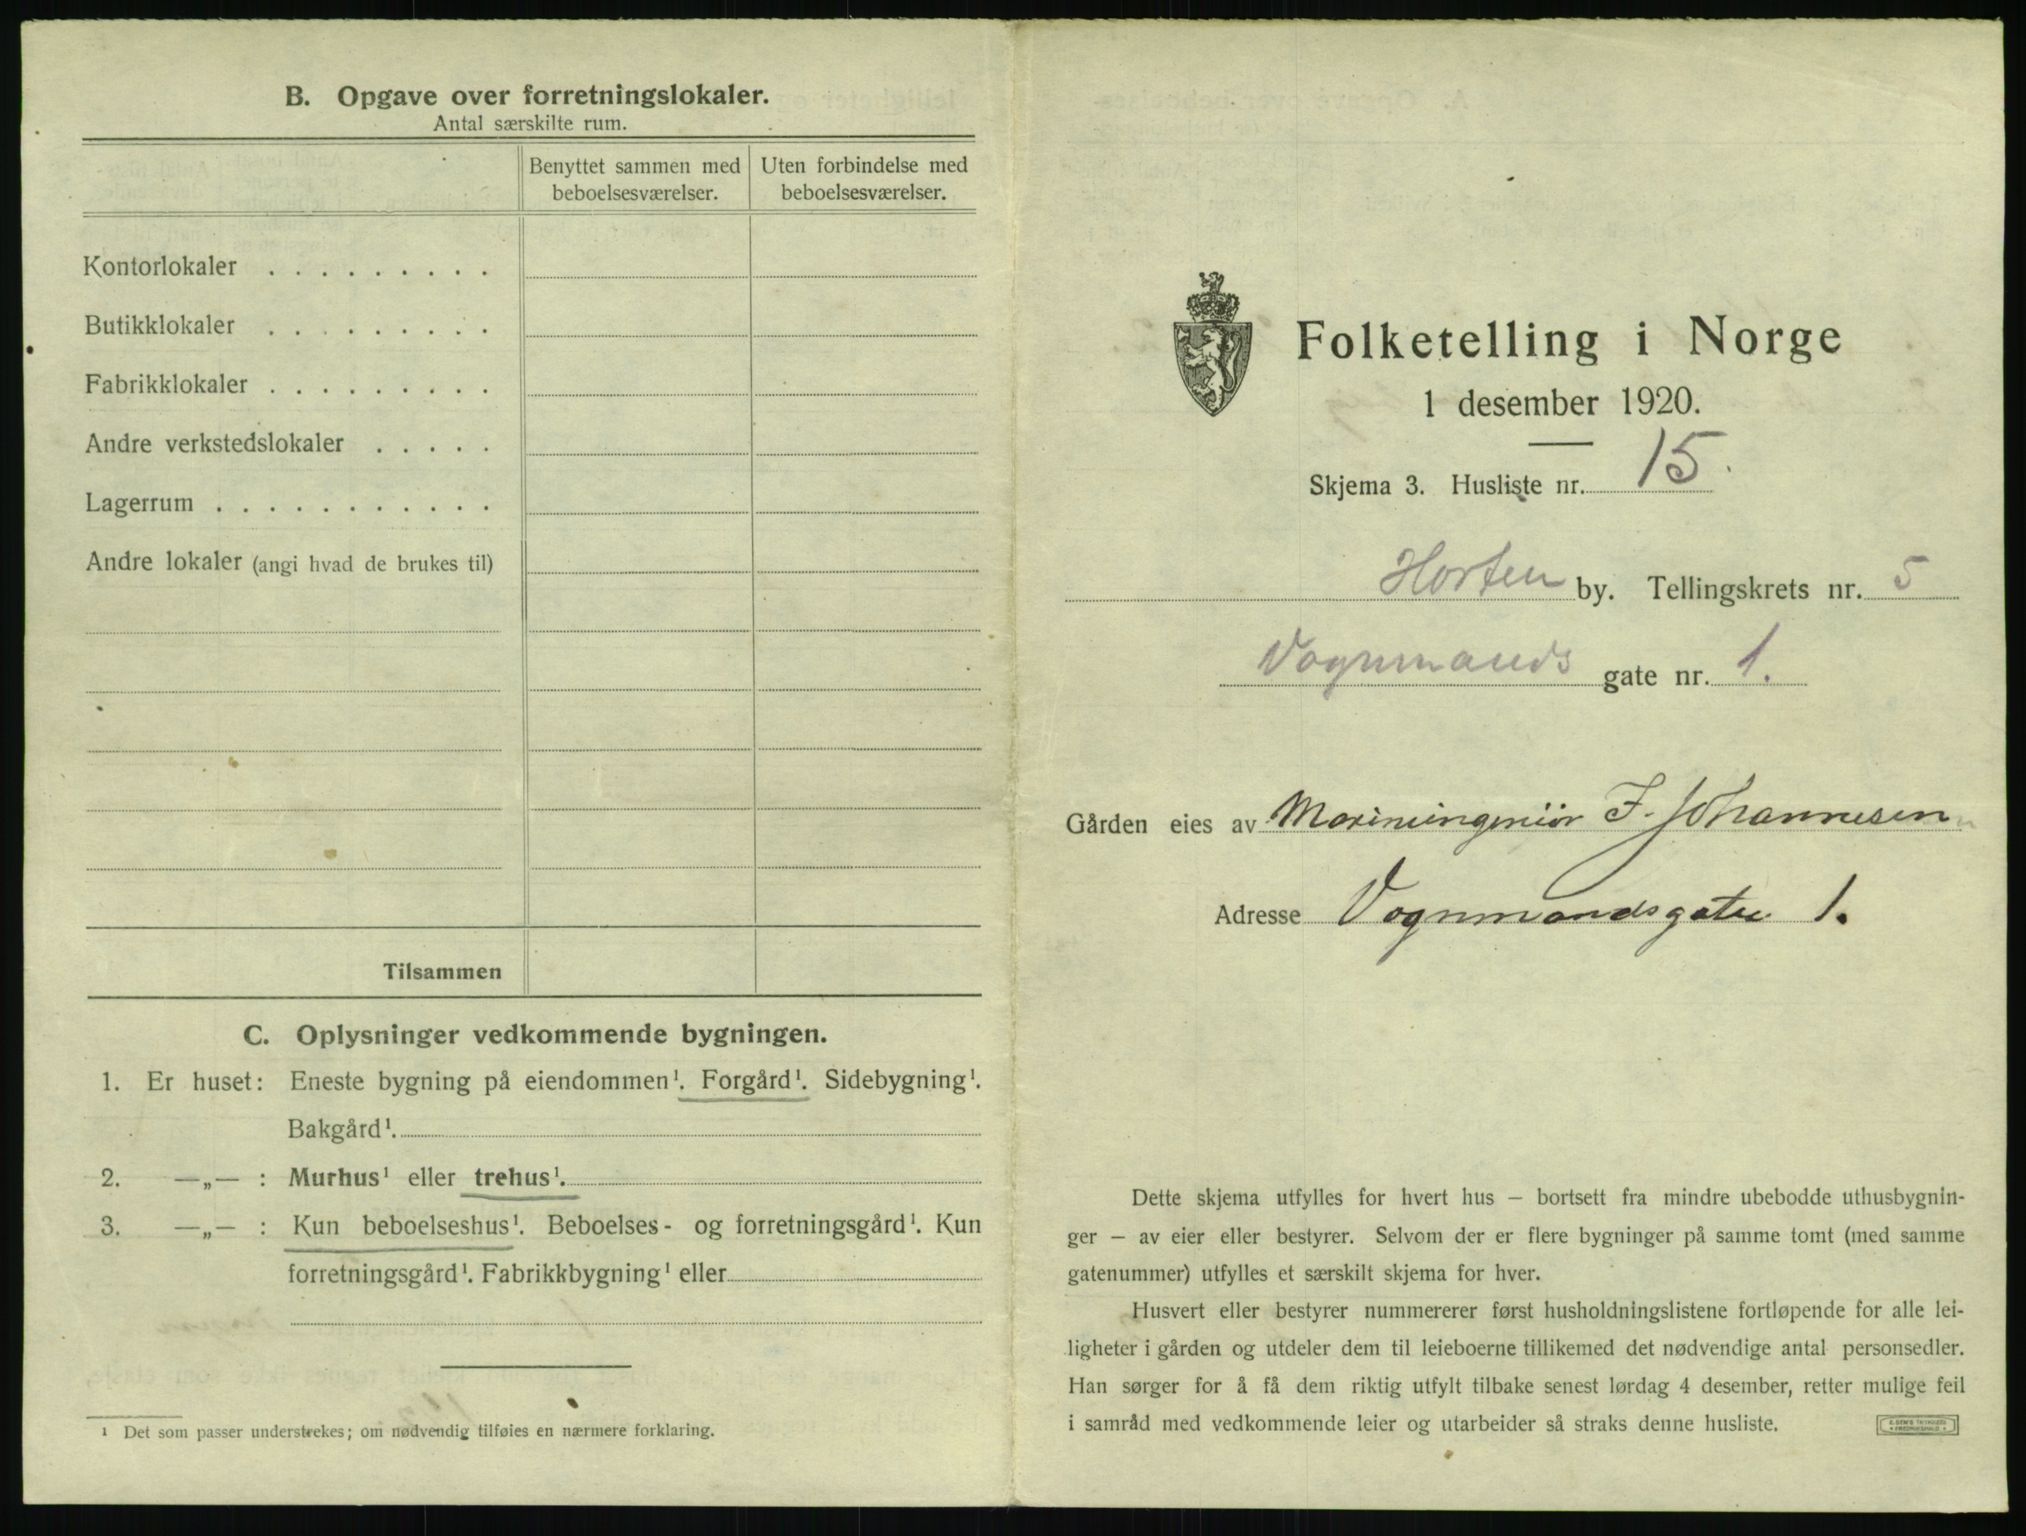 B. Opgave over forretningslokaler.
Antal særskilte rum.
Benyttet sammen med beboelsesværelser.
Uten forbindelse med beboelsesværelser.
Kontorlokaler . . . . . . . . .
Butikklokaler . . . . . . . . .
Fabrikklokaler . . . . . . . . .
Andre verkstedslokaler . . . . .
Lagerrum . . . . . . . . . . .
Andre lokaler (angi hvad de brukes til)
Tilsammen
C. Oplysninger vedkommende bygningen.
1. Er huset: Eneste bygning på eiendommen¹. Forgård¹. Sidebygning¹.
Bakgård¹.
2. —„— : Murhus¹ eller trehus¹.
3. —„— : Kun beboelseshus¹. Beboelses- og forretningsgård¹. Kun
forretningsgård¹. Fabrikkbygning¹ eller
¹ Det som passer understrekes; om nødvendig tilføies en nærmere forklaring.
Folketelling i Norge
1 desember 1920.
Skjema 3. Husliste nr. 15.
Horten by. Tellingskrets nr. 5
Vognmands gate nr. 1.
Gården eies av Marineingeniør F. Johannesen
Adresse Vognmandsgaten 1.
Dette skjema utfylles for hvert hus — bortsett fra mindre ubebodde uthusbygnin-
ger — av eier eller bestyrer. Selvom der er flere bygninger på samme tomt (med samme
gatenummer) utfylles et særskilt skjema for hver.
Husvert eller bestyrer nummererer først husholdningslistene fortløpende for alle lei-
ligheter i gården og utdeler dem til leieboerne tillikemed det nødvendige antal personsedler.
Han sørger for å få dem riktig utfylt tilbake senest lørdag 4 desember, retter mulige feil
i samråd med vedkommende leier og utarbeider så straks denne husliste.